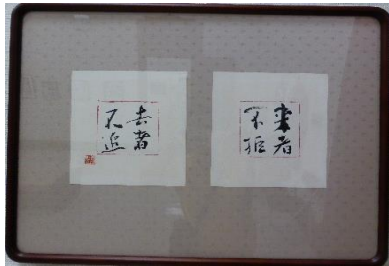 来者
不拒
去者
不追